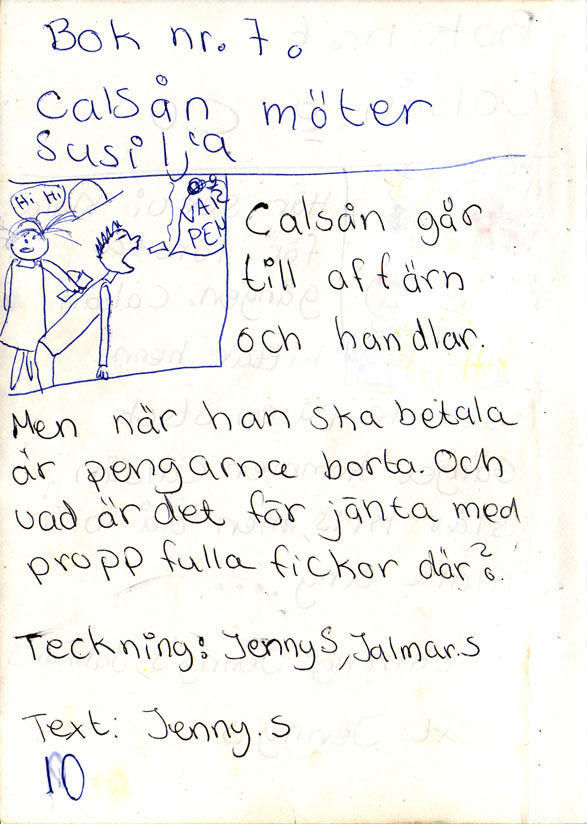 Bok nr. 7.
Calsån möter
Susilja
Hi Hi
VAR
PEN
Calsån går
till affärn
och handlar.
Men när han ska betala
är pengarna borta. Och
vad är det för jänta med
propp fulla fickor där?
Teckning: Jenny S, Jalmar.S
Text: Jenny.S
10